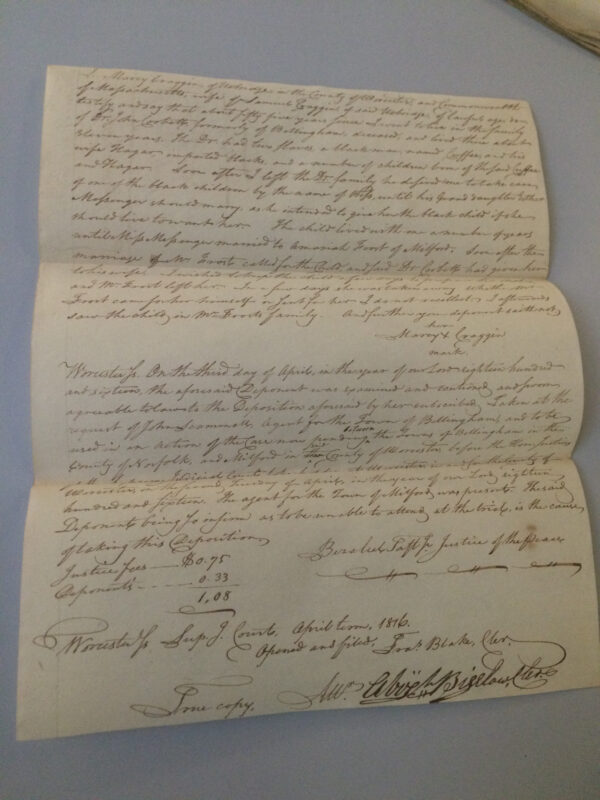 I, Marcy Craggin of Uxbridge in the County of Worcester and Commonwealth
of Massachusetts, wife of Samuel Craggin of said Uxbridge, of lawful age, do
testify and say that about fifty five years since I went to live in the family
of Dr. John Corbett, formerly of Bellingham, deceased, and lived there about
eleven years. The Dr. had two slaves, a black man, named Coffee, and his
wife Hagar, imported blacks, and a number of children born of the said Coffee
and Hagar. Soon after I left the Dr. family he desired me to take care
of one of the black children by the name of, until his Grand daughter Esther
Messenger should marry, as he intended to give her the black child if she
should live to want her. The child lived with me a number of years
until Miss Messenger married to Amariah Frost of Milford. Soon after the
marriage Mr. Frost called for the Child and said Dr. Corbett had given her
to his wife. I wished to keep the child
and Mr. Frost left her. In a few days she was taken away whether Mr.
Frost came for her himself or sent for her I do not recollect. I afterwards
saw the child in Mr. Frosts family. And further your deponent saith not
her
Marcy X Craggin
mark.
Worcester Ss. On the third day of April, in the year of our Lord eighteen hundred
and sixteen, the aforesaid Deponent was examined and cautioned and sworn
agreeable to law to the Deposition aforesaid by her subscribed. Taken at the
request of John Scammell, Agent for the Town of Bellingham, and to be
used in an action of the Case now pending between the Towns of Bellingham in the
County of Norfolk, and Milford in the County of Worcester, before the Hon. Justices
Worcester, on the Tuesday of April, in the year of our Lord eighteen
hundred and sixteen. The agent for the Town of Milford was present. The said
Deponent being so infirm as to be unable to attend at the trial, is the cause
of taking this Deposition.
Justice fees — $0.75
Deponents — 0.33
1,08
Bezaleel Taft Jr. Justice of the peace
Worcester Ss Sup. J. Court, April term, 1816.
Opened and filed, Fras. Blake, Cler.
True copy.
Attr. Abijah Bigelow, Cler.